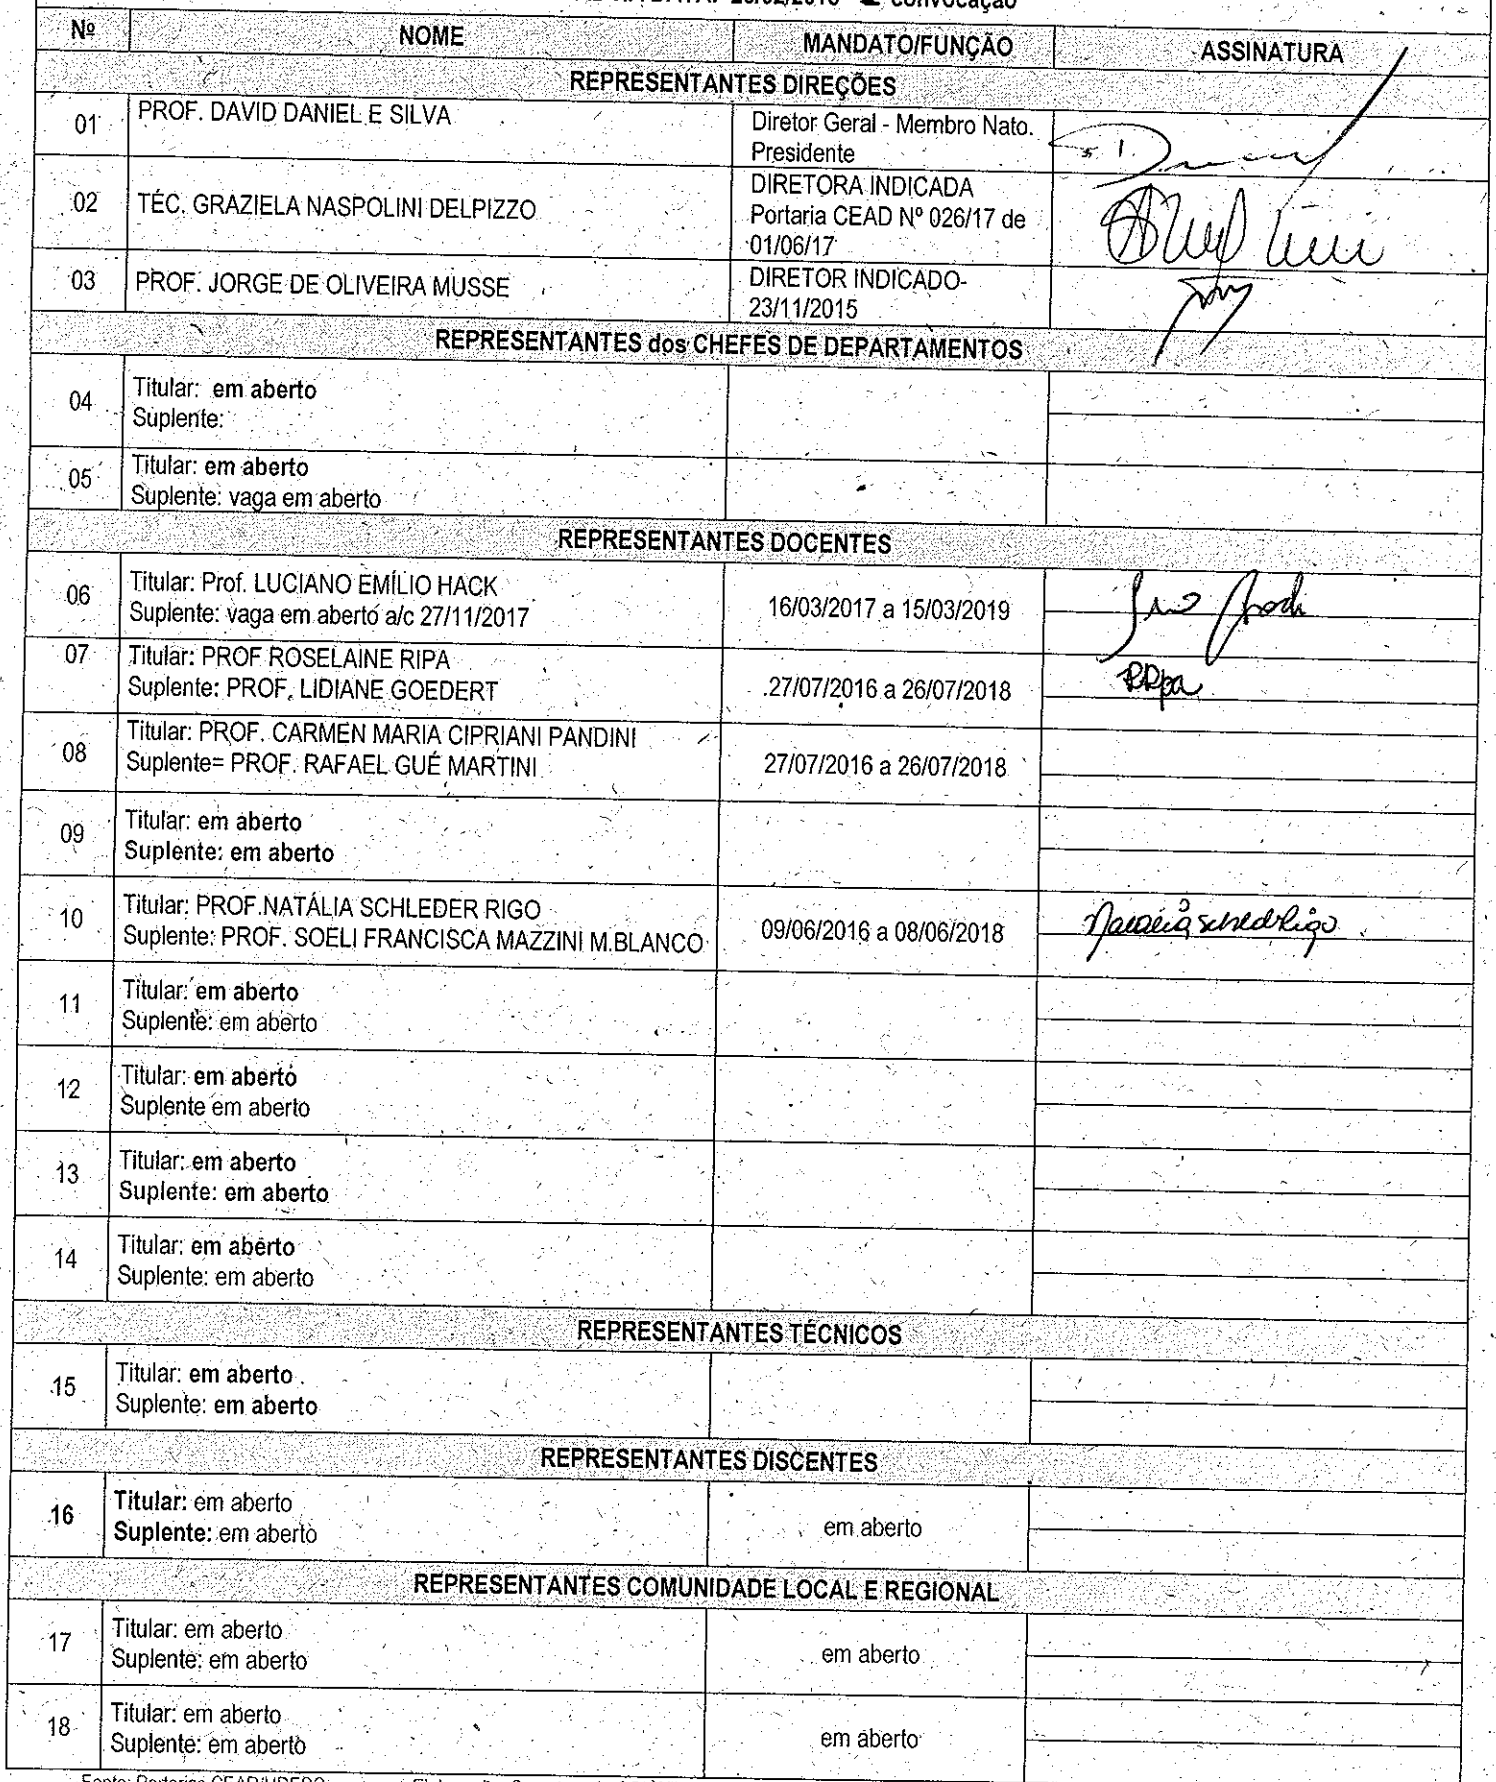 Convocação
Nº NOME MANDATO/FUNÇÃO ASSINATURA
REPRESENTANTES DIREÇÕES
01 PROF. DAVID DANIEL E SILVA Diretor Geral - Membro Nato.
Presidente
02 TÉC. GRAZIELA NASPOLINI DELPIZZO DIRETORA INDICADA
Portaria CEAD Nº 026/17 de
01/06/17
03 PROF. JORGE DE OLIVEIRA MUSSE DIRETOR INDICADO-
23/11/2015
REPRESENTANTES dos CHEFES DE DEPARTAMENTOS
04 Titular: em aberto
Suplente:
05 Titular: em aberto
Suplente: vaga em aberto
REPRESENTANTES DOCENTES
06 Titular: Prof. LUCIANO EMÍLIO HACK
Suplente: vaga em aberto a/c 27/11/2017 16/03/2017 a 15/03/2019
07 Titular: PROF ROSELAINE RIPA
Suplente: PROF. LIDIANE GOEDERT 27/07/2016 a 26/07/2018 RRpa
08 Titular: PROF. CARMEN MARIA CIPRIANI PANDINI
Suplente= PROF. RAFAEL GUÉ MARTINI 27/07/2016 a 26/07/2018
09 Titular: em aberto
Suplente: em aberto
10 Titular: PROF.NATÁLIA SCHLEDER RIGO
Suplente: PROF. SOELI FRANCISCA MAZZINI M.BLANCO 09/06/2016 a 08/06/2018
11 Titular: em aberto
Suplente: em aberto
12 Titular: em aberto
Suplente em aberto
13 Titular: em aberto
Suplente: em aberto
14 Titular: em aberto
Suplente: em aberto
REPRESENTANTES TÉCNICOS
15 Titular: em aberto
Suplente: em aberto
REPRESENTANTES DISCENTES
16 Titular: em aberto
Suplente: em aberto em aberto
REPRESENTANTES COMUNIDADE LOCAL E REGIONAL
17 Titular: em aberto
Suplente: em aberto em aberto
18 Titular: em aberto
Suplente: em aberto em aberto